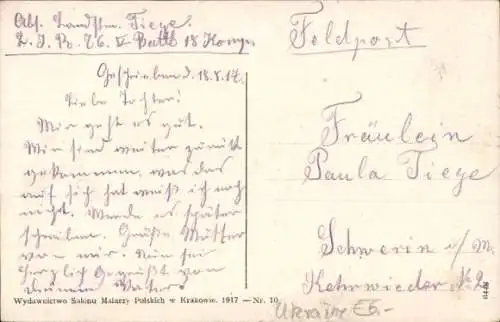 Abs. Landstm. Tiege
L. J. R. 76. IV Batt 18 Komp.
Feldpost
Geschrieben d. 18.8.17.
Liebe Tochter!
Mir geht es gut.
Wir sind weiter zurück
gekommen, was das
auf sich hat weiß ich noch
nicht. Werde es später
schreiben. Grüße Mutter
von mir. Nun sei
herzlich Gegrüßt von
deinem Vater
Fräulein
Paula Tiege
Schwerin i/M.
Kehrwieder № 2
Wydawnictwo Salonu Malarzy Polskich w Krakowie. 1917 — Nr. 10
Ukraine EG.-